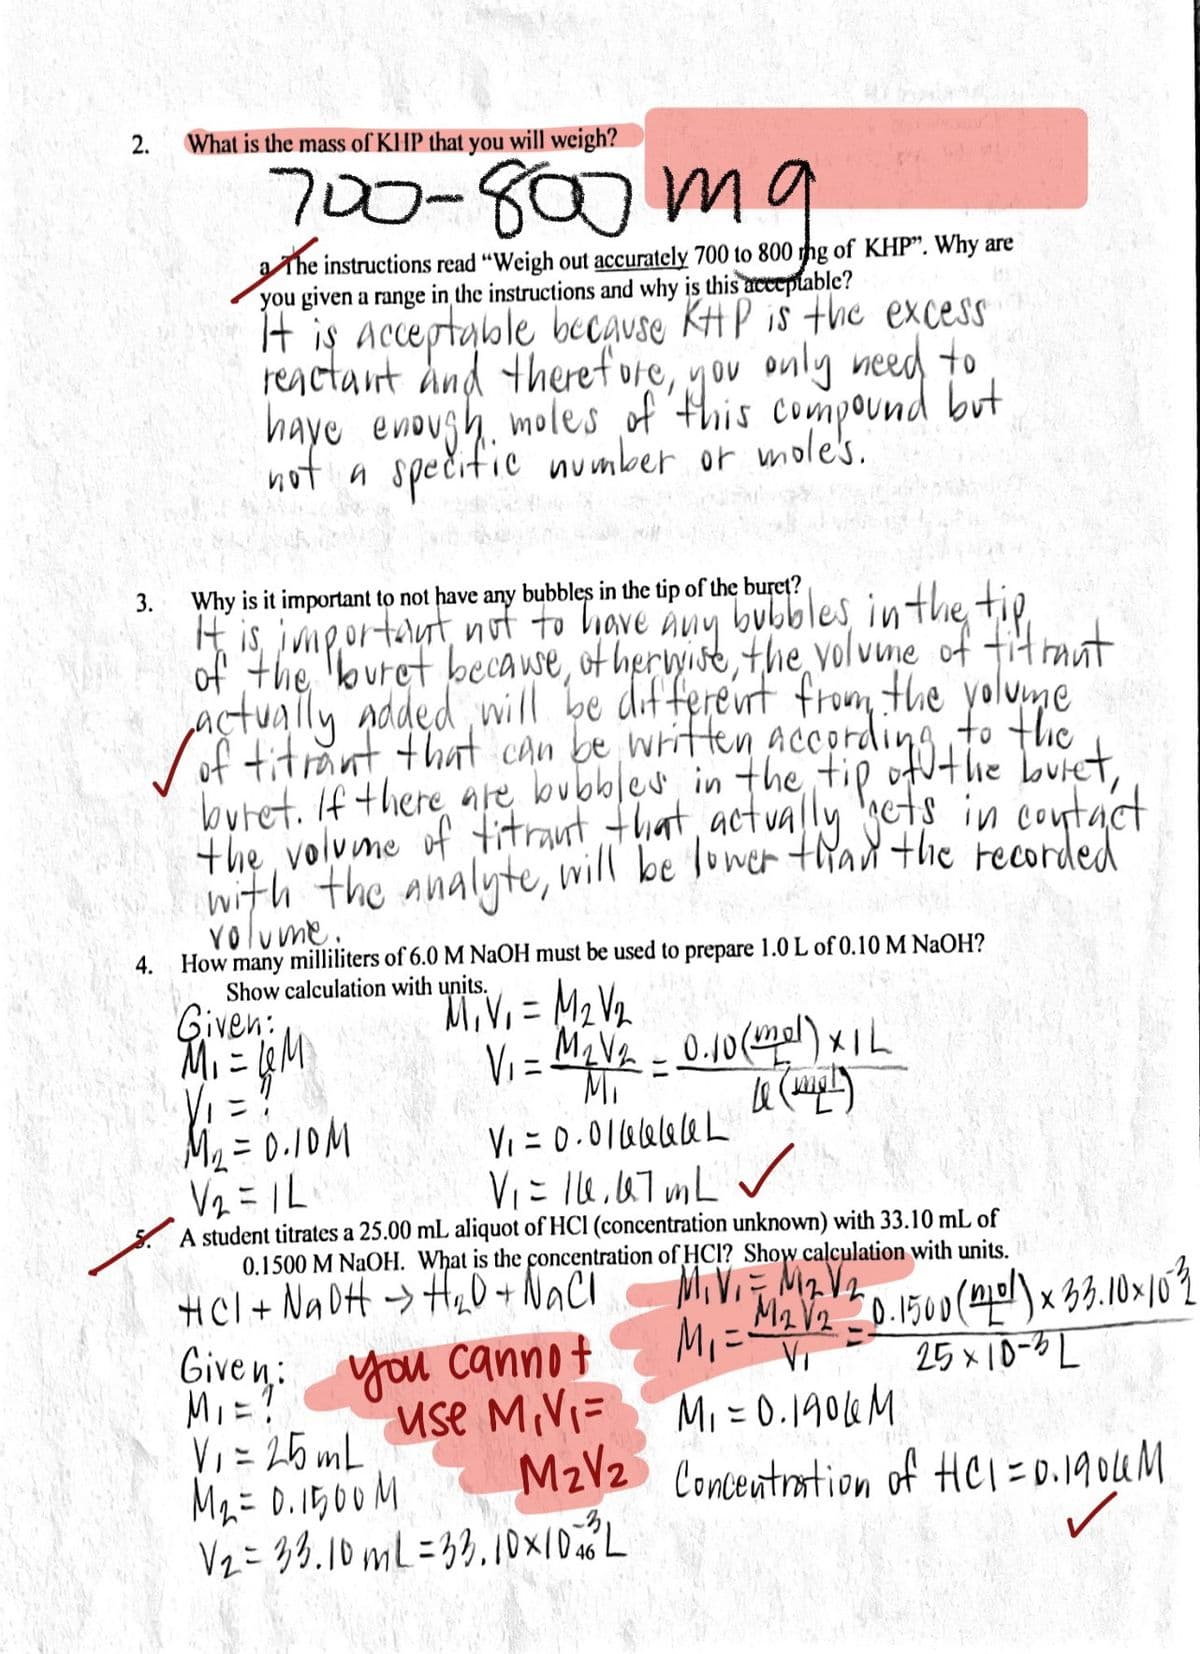 2. What is the mass of KHP that you will weigh?
700-800 mg
a. The instructions read “Weigh out accurately 700 to 800 mg of KHP”. Why are
you given a range in the instructions and why is this acceptable?
It is acceptable because KHP is the excess
reactant and therefore, you only need to
have enough moles of this compound but
not a specific number or moles.
3. Why is it important to not have any bubbles in the tip of the buret?
It is important not to have any bubbles in the tip
of the buret because, otherwise, the volume of titrant
actually added will be different from the volume
of titrant that can be written according to the
buret. If there are bubbles in the tip of the buret,
the volume of titrant that actually gets in contact
with the analyte, will be lower than the recorded
volume.
4. How many milliliters of 6.0 M NaOH must be used to prepare 1.0 L of 0.10 M NaOH?
Show calculation with units.
Given: M₁V₁ = M₂V₂
M₁ = 6M V₁ = M₂V₂/M₁ = 0.10(mol/L) x 1L / 6(mol/L)
V₁ = ?
M₂ = 0.10M V₁ = 0.016666L
V₂ = 1L V₁ = 16.67 mL ✓
5. A student titrates a 25.00 mL aliquot of HCl (concentration unknown) with 33.10 mL of
0.1500 M NaOH. What is the concentration of HCl? Show calculation with units.
HCl + NaOH → H₂O + NaCl M₁V₁ = M₂V₂
M₁ = M₂V₂/V₁ = 0.1500(mol/L) x 33.10x10⁻³L / 25x10⁻³L
Given: you cannot
M₁ = ? use M₁V₁= M₁ = 0.1986M
V₁ = 25 mL M₂V₂
M₂ = 0.1500M Concentration of HCl = 0.1986M ✓
V₂ = 33.10 mL = 33.10x10⁻³ L
46